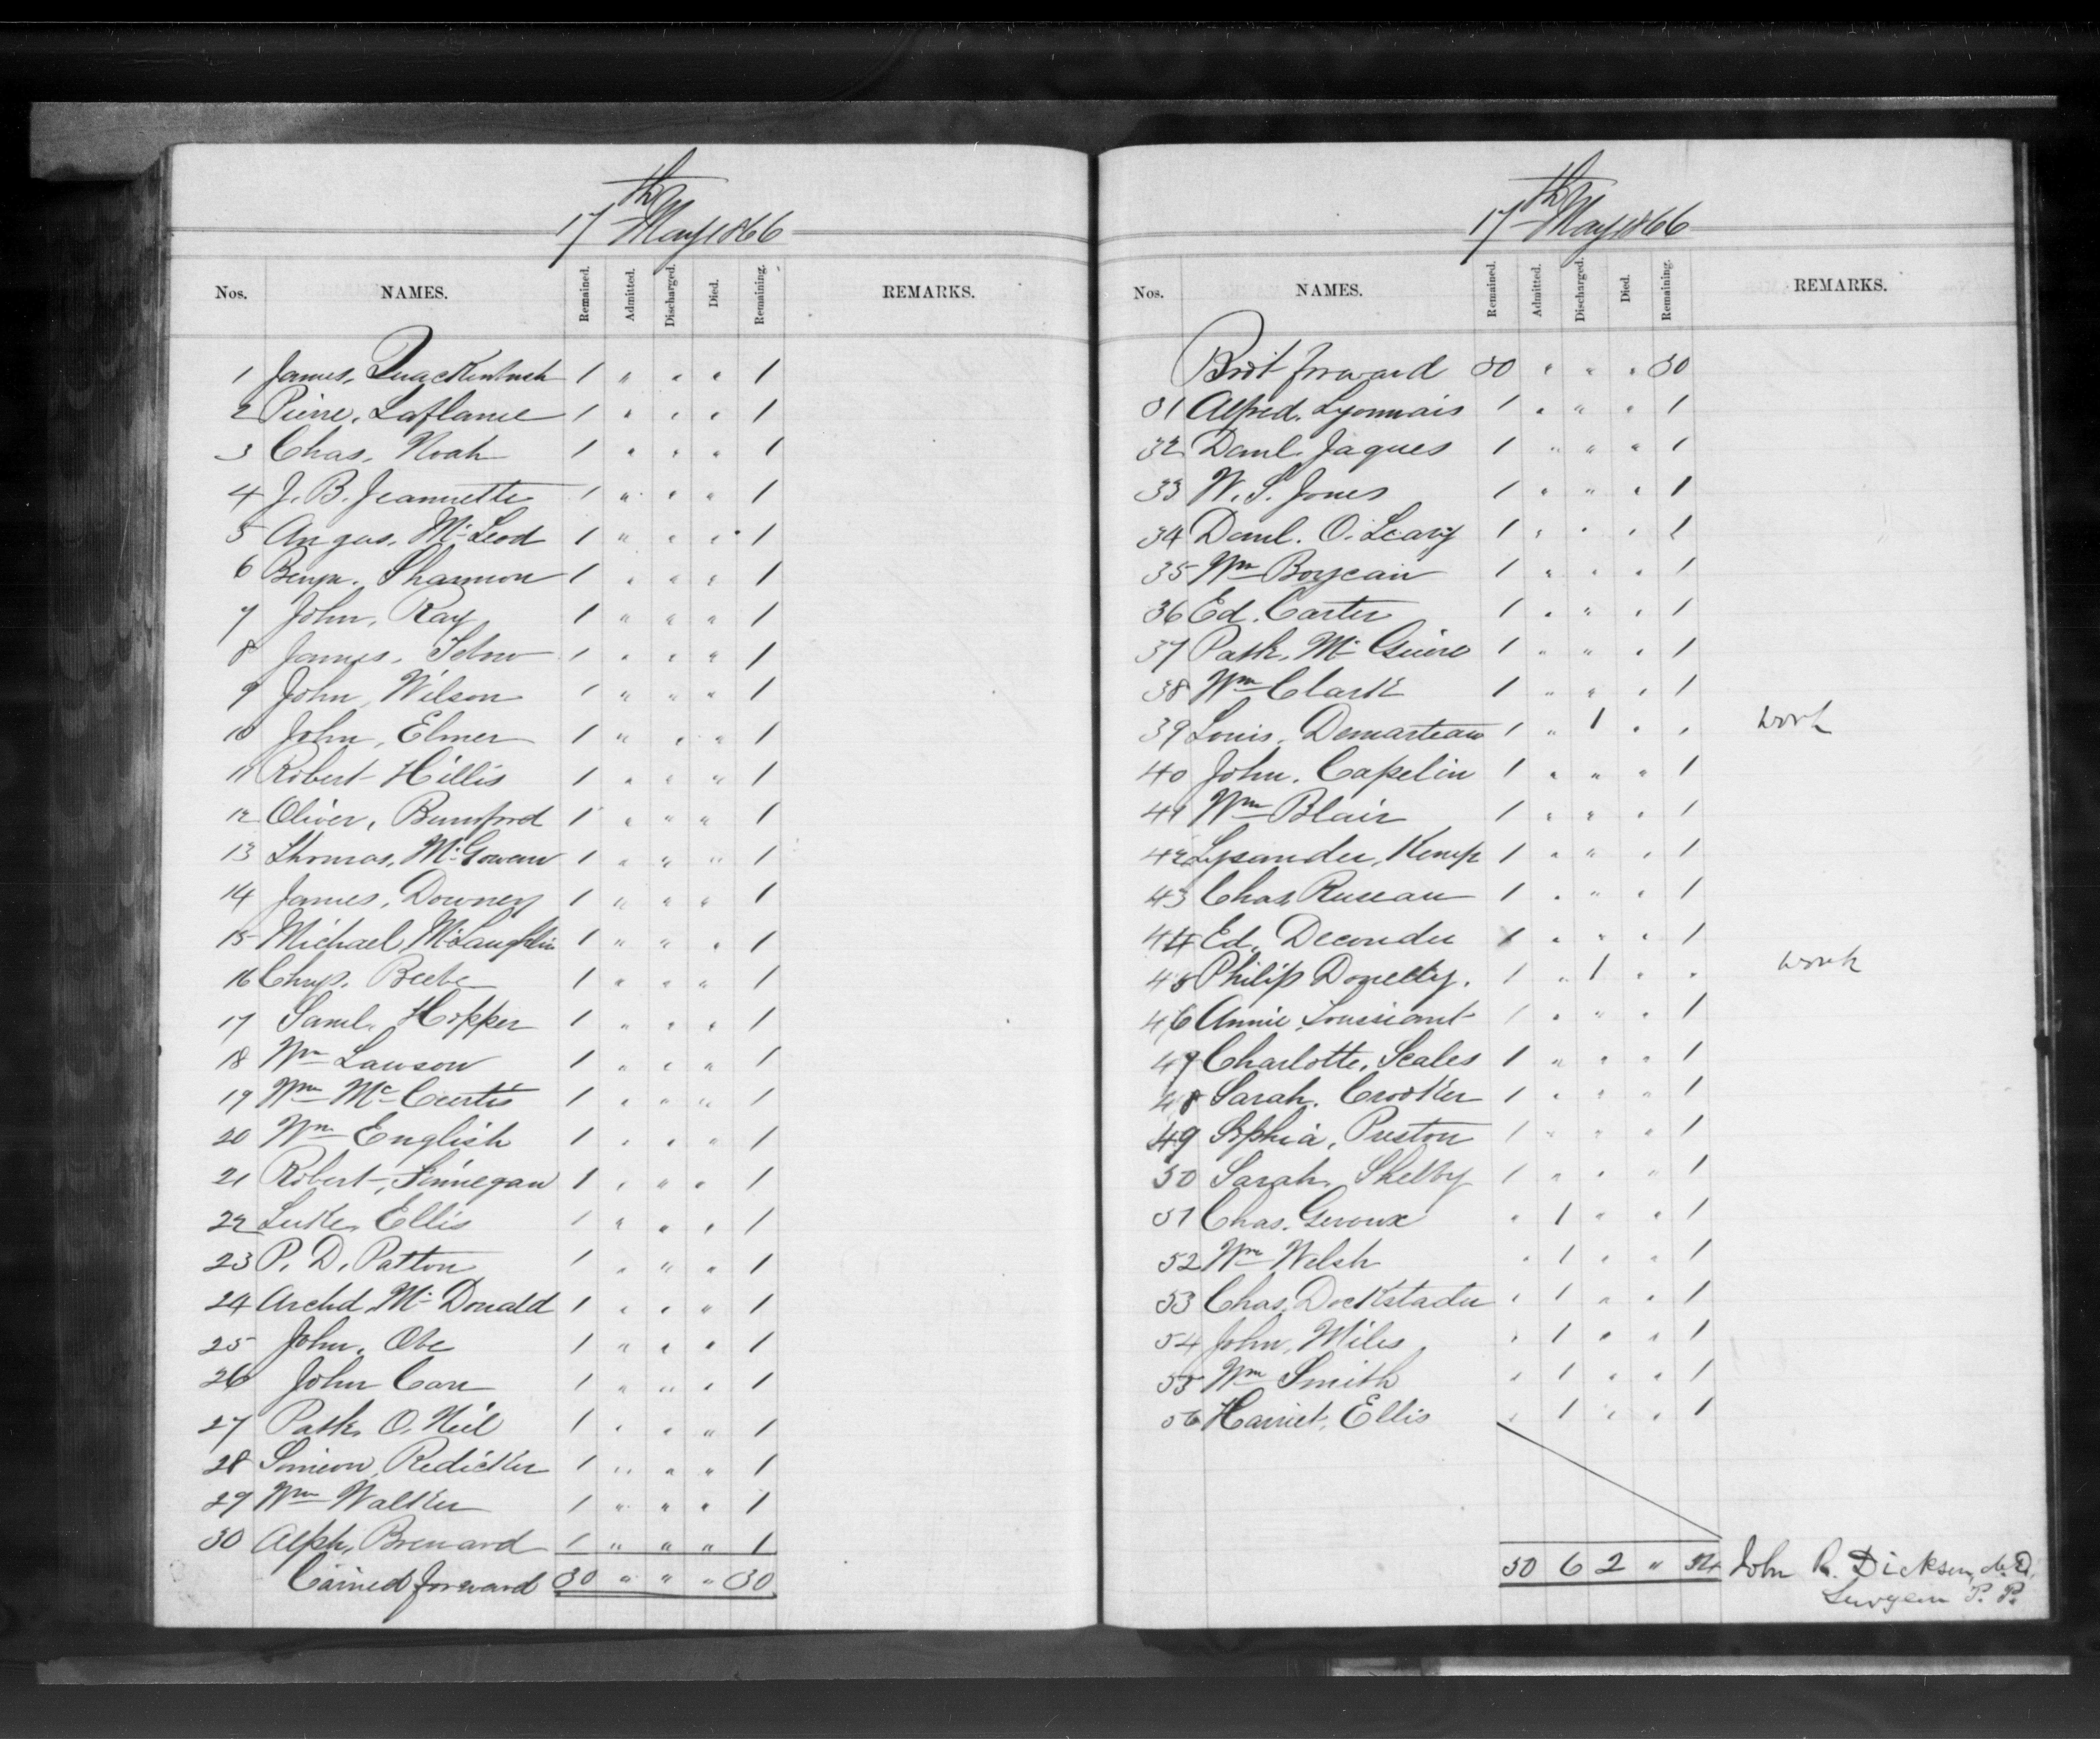 17th May 1866
Nos. NAMES. Remained. Admitted. Discharged. Died. Remaining. REMARKS.
1 James, Quackenbush 1 " " " 1
2 Pierre, Laflame 1 " " " 1
3 Chas, Noah 1 " " " 1
4 J. B. Jeannette 1 " " " 1
5 Angus, McLeod 1 " " " 1
6 Benjn. Shannon 1 " " " 1
7 John, Ray 1 " " " 1
8 James, 1 " " " 1
9 John, Wilson 1 " " " 1
10 John, Elmer 1 " " " 1
11 Robert Hillis 1 " " " 1
12 Oliver, Bumford 1 " " " 1
13 Thomas, McGowan 1 " " " 1
14 James, Downey 1 " " " 1
15 Michael McLaughlin 1 " " " 1
16 Beebe 1 " " " 1
17 Saml. Hopper 1 " " " 1
18 Wm Lawson 1 " " " 1
19 Wm McCurtis 1 " " " 1
20 Wm English 1 " " " 1
21 Robert, Finnegan 1 " " " 1
22 Luke, Ellis 1 " " " 1
23 P. D. Patton 1 " " " 1
24 Archd. McDonald 1 " " " 1
25 John, Obe 1 " " " 1
26 John Carr 1 " " " 1
27 Patk. O. Neil 1 " " " 1
28 Simeon, Redicker 1 " " " 1
29 Wm Walker 1 " " " 1
30 Alph, Brenard 1 " " " 1
Carried forward 30 " " " 30
17th May 1866
Nos. NAMES. Remained. Admitted. Discharged. Died. Remaining. REMARKS.
Brot forward 30 " " " 30
31 Alfred. Lyonnais 1 " " " 1
32 Danl. Jaques 1 " " " 1
33 W. S. Jones 1 " " " 1
34 Danl. O. Leary 1 " " " 1
35 Wm Boycain 1 " " " 1
36 Ed. Carter 1 " " " 1
37 Patk. McGuire 1 " " " 1
38 Wm Clark 1 " " " 1
39 Louis, Demarteau 1 " 1 " " work
40 John. Capelin 1 " " " 1
41 Wm Blair 1 " " " 1
42 Lysander, Kemp 1 " " " 1
43 Chas Ruseau 1 " " " 1
44 Ed. Decoudu 1 " " " 1
45 Philip Donelly. 1 " 1 " " work
46 Annie Toussiant 1 " " " 1
47 Charlotte, Scales 1 " " " 1
48 Sarah. Crooker 1 " " " 1
49 Sophia, Preston 1 " " " 1
50 Sarah, Shelby 1 " " " 1
51 Chas. Geroux " 1 " " 1
52 Wm Welsh " 1 " " 1
53 Chas, Dockstader " 1 " " 1
54 John, Miles " 1 " " 1
55 Wm Smith " 1 " " 1
56 Harriet, Ellis " 1 " " 1
50 6 2 " 54 John R. Dickson, M.D.
Surgeon P. P.